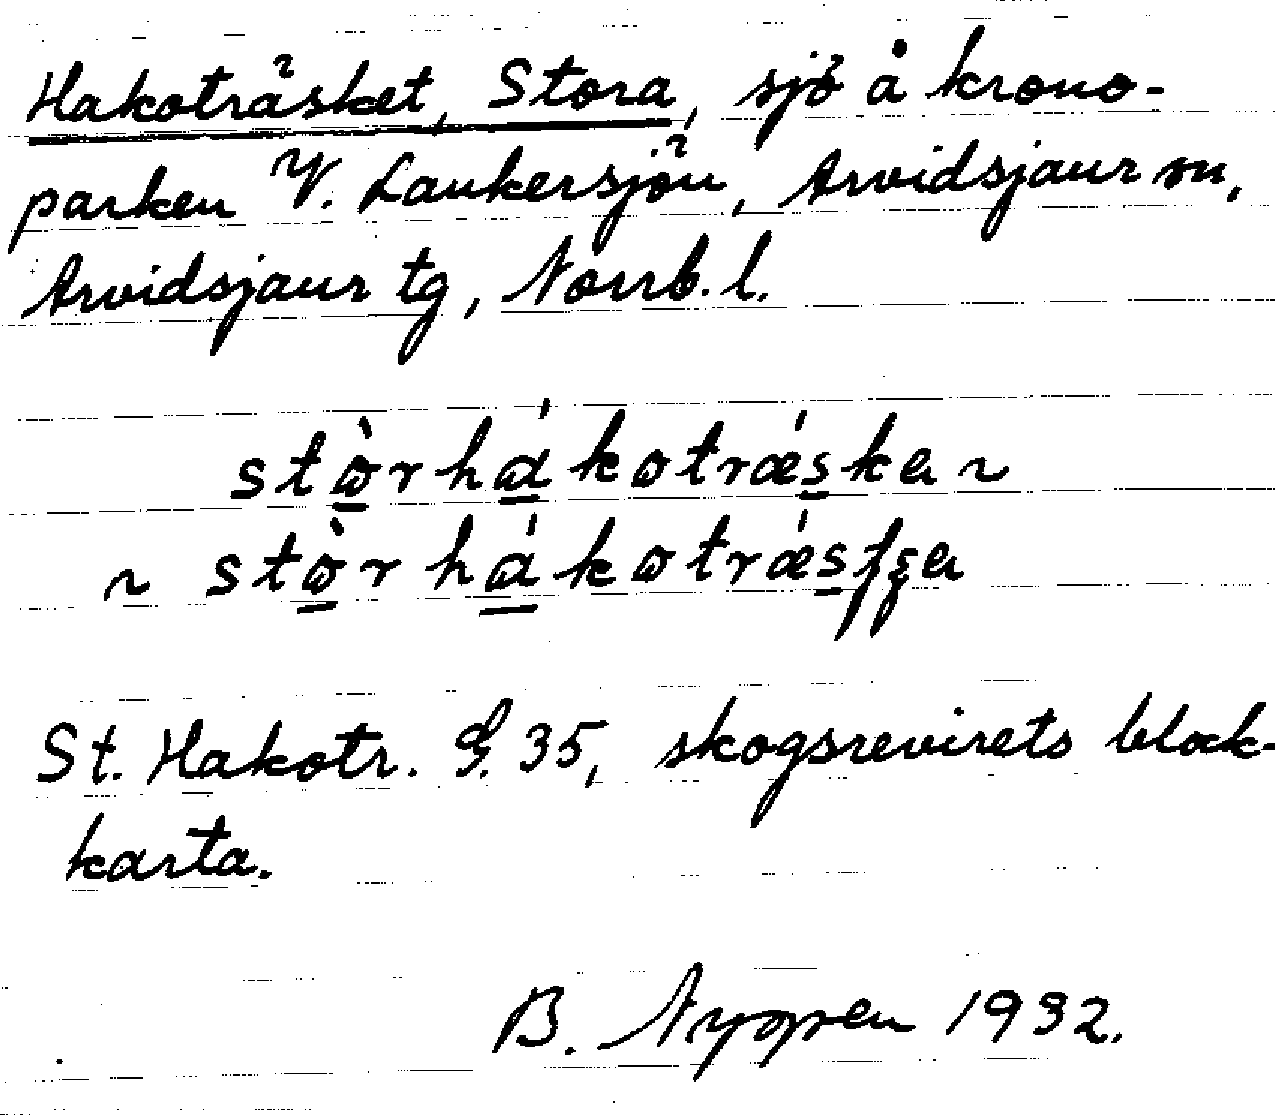 Hakoträsket, Stora, sjö å krono-
parken V. Laukersjön, Arvidsjaur sn,
Arvidsjaur tg, Norrb. l.
stò̱rhá̱kotrǽs̱kɐ ~
~ stò̱rhá̱kotrǽs̱ʃʂɐ
St. Hakotr. G. 35, skogsrevirets block-
karta.
B. Nygren 1932.